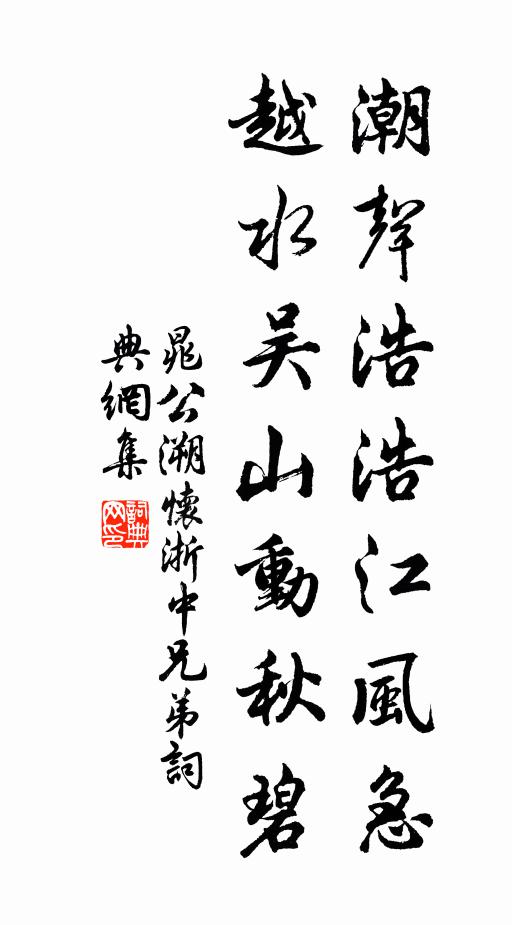 潮聲浩浩江風急
越水吴山動秋碧
晁公溯懷浙中兄弟詞
典網集
詞典
网印